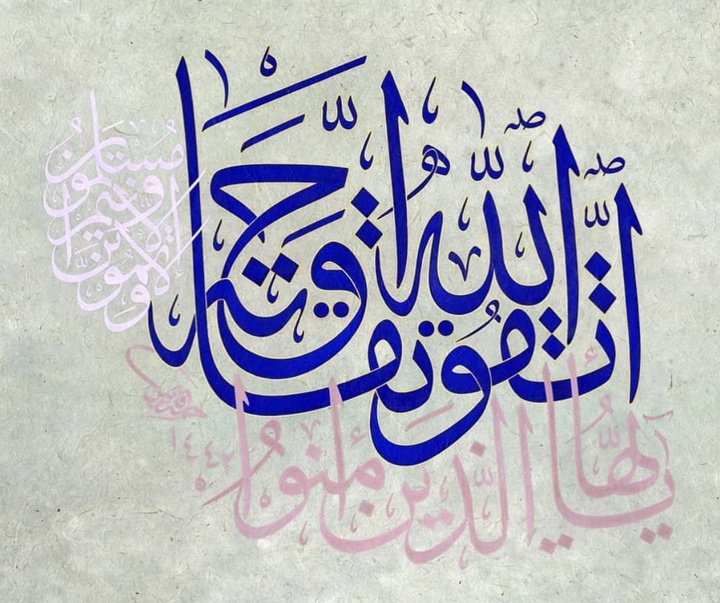 يأيها الذين ءامنوا
اتقوا الله حق تقاته ولا تموتن
إلا وأنتم مسلمون
١٤٤٢